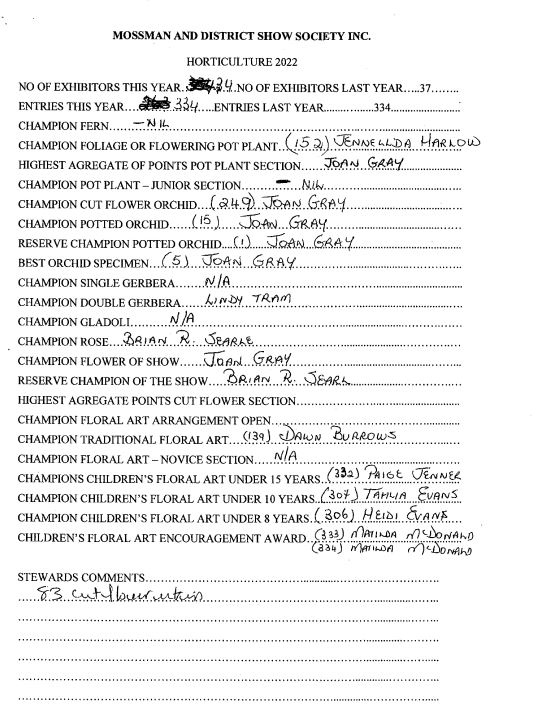 MOSSMAN AND DISTRICT SHOW SOCIETY INC.
HORTICULTURE 2022
NO OF EXHIBITORS THIS YEAR 34 NO OF EXHIBITORS LAST YEAR.....37........
ENTRIES THIS YEAR 334 ENTRIES LAST YEAR................334....................
CHAMPION FERN – NIL
CHAMPION FOLIAGE OR FLOWERING POT PLANT (152) JENNELLDA HARLOW
HIGHEST AGREGATE OF POINTS POT PLANT SECTION JOAN GRAY
CHAMPION POT PLANT – JUNIOR SECTION – NIL
CHAMPION CUT FLOWER ORCHID (249) JOAN GRAY
CHAMPION POTTED ORCHID (15) JOAN GRAY
RESERVE CHAMPION POTTED ORCHID (1) JOAN GRAY
BEST ORCHID SPECIMEN (5) JOAN GRAY
CHAMPION SINGLE GERBERA N/A
CHAMPION DOUBLE GERBERA LINDY TRAM
CHAMPION GLADOLI N/A
CHAMPION ROSE BRIAN R. SEARLE
CHAMPION FLOWER OF SHOW JOAN GRAY
RESERVE CHAMPION OF THE SHOW BRIAN R. SEARL
HIGHEST AGREGATE POINTS CUT FLOWER SECTION
CHAMPION FLORAL ART ARRANGEMENT OPEN
CHAMPION TRADITIONAL FLORAL ART (139) DAWN BURROWS
CHAMPION FLORAL ART – NOVICE SECTION N/A
CHAMPIONS CHILDREN'S FLORAL ART UNDER 15 YEARS (332) PAIGE JENNER
CHAMPION CHILDREN'S FLORAL ART UNDER 10 YEARS (307) TAHLIA EVANS
CHAMPION CHILDREN'S FLORAL ART UNDER 8 YEARS (306) HEIDI EVANS
CHILDREN'S FLORAL ART ENCOURAGEMENT AWARD (333) MATILDA McDONALD
(334) MATILDA McDONALD
STEWARDS COMMENTS
83 cutflower entries